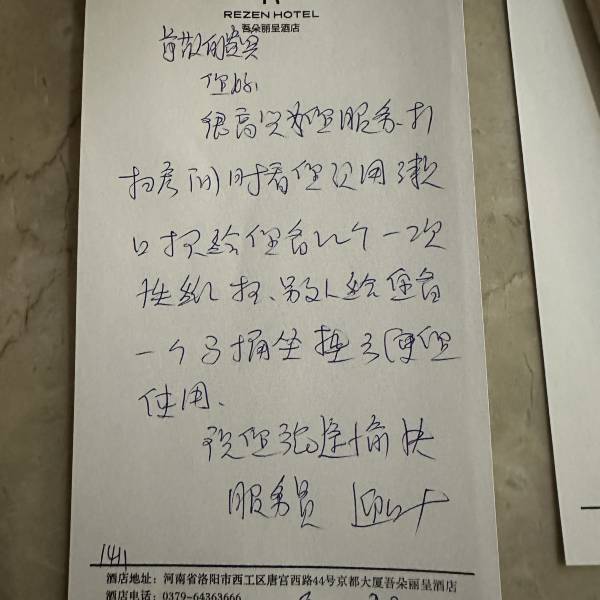 REZEN HOTEL
吾朵丽呈酒店
您好
很高兴为您服务、打
扫房间时看您没用漱
口杯给您备几个一次
性纸杯、另外给您备
一个马桶坐垫方便您
使用、
祝您旅途愉快
服务员
1411
酒店地址：河南省洛阳市西工区唐宫西路44号京都大厦吾朵丽呈酒店
酒店电话：0379-64363666